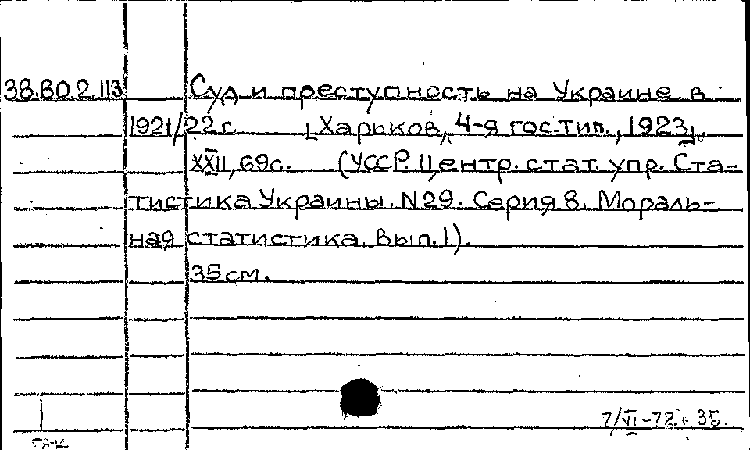 38.80.2.113 Суд и преступность на Украине в
1921/22 г. [Харьков, 4-я гос.тип., 1923].
XXII, 69с. (УССР. Центр. стат. упр. Ста-
тистика Украины. N29. Серия 8. Мораль-
ная статистика. Вып. 1).
35 см.
7/VI-72. 35.